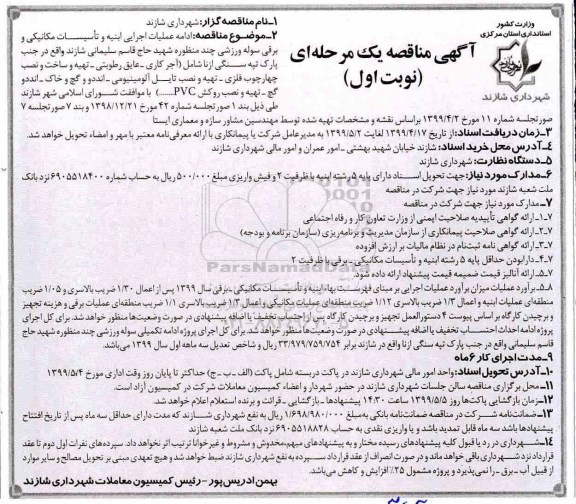 وزارت کشور
استانداری استان مرکزی
شهرداری شازند
آگهی مناقصه یک مرحله‌ای
(نوبت اول)
۱-نام مناقصه گزار: شهرداری شازند
۲-موضوع مناقصه: ادامه عملیات اجرایی ابنیه و تأسیسات مکانیکی و
برقی سوله ورزشی چند منظوره شهید حاج قاسم سلیمانی شازند واقع در جنب
پارک تپه سنگی ازنا شامل (آجر کاری - عایق رطوبتی - تهیه و ساخت و نصب
چهارچوب فلزی - تهیه و نصب تایل آلومینیومی - اندود و گچ و خاک - اندود
گچ - تهیه و نصب روکش PVC......) با موافقت شورای اسلامی شهر شازند
طی ذیل بند ۱ صورتجلسه شماره ۴۲ مورخ ۱۳۹۸/۱۲/۲۱ و بند ۷ صورتجلسه ۷
صورتجلسه شماره ۱۱ مورخ ۱۳۹۹/۴/۲ براساس نقشه و مشخصات تهیه شده توسط مهندسین مشاور سازه و معماری ایستا
۳-زمان دریافت اسناد: از تاریخ ۱۳۹۹/۴/۱۷ لغایت ۱۳۹۹/۵/۲ به مدیرعامل شرکت یا پیمانکاری با ارائه معرفی‌نامه معتبر با مهر و امضاء تحویل خواهد شد.
۴-آدرس محل خرید اسناد: شازند خیابان شهید بهشتی - امور عمران و امور مالی شهرداری شازند
۵-دستگاه نظارت: شهرداری شازند
۶-مدارک مورد نیاز: جهت تحویل اسناد دارای پایه ۵ رشته ابنیه با ظرفیت ۲ و فیش واریزی مبلغ ۵۰۰/۰۰۰ ریال به حساب شماره ۶۹۰۵۵۱۸۴۰۰ نزد بانک
ملت شعبه شازند مورد نیاز جهت شرکت در مناقصه
۷-مدارک مورد نیاز جهت شرکت در مناقصه
۷-۱-ارائه گواهی تأییدیه صلاحیت ایمنی از وزارت تعاون کار و رفاه اجتماعی
۷-۲-ارائه گواهی صلاحیت پیمانکاری از سازمان مدیریت و برنامه‌ریزی (سازمان برنامه و بودجه)
۷-۳-ارائه گواهی نامه ثبت‌نام در نظام مالیات بر ارزش افزوده
۷-۴-دارا بودن حداقل پایه ۵ رشته ابنیه و تأسیسات مکانیکی - برقی با ظرفیت ۲
۷-۵-ارائه آنالیز قیمت ضمیمه قیمت پیشنهاد ارائه داده شود.
۸-برآورد عملیات میزان برآورد عملیات اجرایی بر مبنای فهرست بهاء ابنیه و تأسیسات مکانیکی - برقی سال ۱۳۹۹ پس از اعمال ۱/۳۰ ضریب بالاسری و ۱/۰۵ ضریب
منطقه‌ای عملیات ابنیه و اعمال ۱/۳ ضریب بالاسری ۱/۱۲ ضریب منطقه‌ای عملیات مکانیکی و اعمال ۱/۳ ضریب بالاسری ۱/۱ ضریب منطقه‌ای عملیات برقی و هزینه تجهیز
و برچیدن کارگاه بر اساس پیوست ۴ دستورالعمل تجهیز و برچیدن کارگاه پس از احتساب تخفیف یا اضافه پیشنهادی در صورت وضعیت‌ها منظور خواهد شد. برای کل اجرای
پروژه ادامه احداث احتساب تخفیف یا اضافه پیشنهادی در صورت وضعیت‌ها منظور خواهد شد. برای کل اجرای پروژه ادامه تکمیلی سوله ورزشی چند منظوره شهید حاج
قاسم سلیمانی واقع در جنب پارک تپه سنگی ازنا واقع در شازند برابر ۳۳/۹۷۹/۷۵۹/۷۵۴ ریال و شاخص تعدیل سه ماهه اول سال ۱۳۹۹ می‌باشد.
۹-مدت اجرای کار ۶ ماه
۱۰-آدرس تحویل اسناد: واحد امور مالی شهرداری شازند در پاکت دربسته شامل پاکت (الف - ب - ج) حداکثر تا پایان روز وقت اداری مورخ ۱۳۹۹/۵/۴
۱۱-محل برگزاری مناقصه سالن جلسات شهرداری شازند در حضور شهردار و اعضاء کمیسیون معاملات شرکت در کمیسیون آزاد است.
۱۲-زمان بازگشایی پاکت‌ها روز ۱۳۹۹/۵/۵ ساعت ۱۴:۳۰ پیشنهادها - بازگشایی - قرائت و برنده استعلام اعلام خواهد شد.
۱۳-ضمانت‌نامه شرکت در مناقصه ضمانت‌نامه بانکی به مبلغ ۱/۶۹۸/۹۸۰/۰۰۰ ریال به نفع شهرداری شازند که مدت دارای حداقل سه ماه پس از تاریخ افتتاح
پیشنهادها باشد سه ماه قابل تمدید باشد و یا واریزی نقدی به حساب ۶۹۰۵۵۱۸۸۲۸ نزد بانک ملت شعبه شازند
۱۴-شهرداری در رد یا قبول کلیه پیشنهادهای رسیده مختار و به پیشنهادهای مبهم، مخدوش و مشروط و غیرخوانا ترتیب اثر نخواهد داد. سپرده‌های نفرات اول دوم تا عقد
قرارداد نزد شهرداری باقی خواهد ماند و در صورت انصراف از عقد قرارداد سپرده به نفع شهرداری شازند ضبط خواهد شد و هیچ تعهدی مبنی بر تحویل مصالح و سایر موارد
از قبیل آب - برق - را نمی‌پذیرد و پروژه مشمول ۲۵٪ افزایش و کاهش می‌باشد.
بهمن ادریس پور - رئیس کمیسیون معاملات شهرداری شازند
ParsNamadData